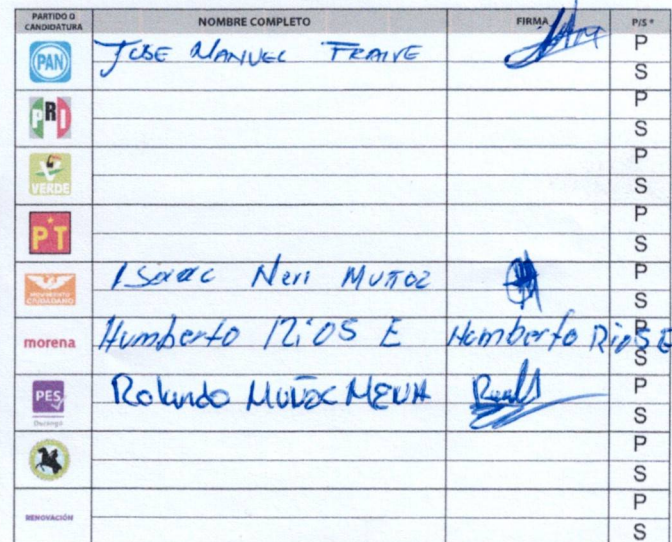 PARTIDO O CANDIDATURA NOMBRE COMPLETO FIRMA P/S *
PAN JOSE MANUEL P
S
PRI P
S
VERDE P
S
PT P
S
MOVIMIENTO CIUDADANO Isaac Neri MUÑOZ P
S
morena Humberto RiOS E Humberto RiOS E P
S
PES Durango Rolando MUÑOZ MENA P
S
P
S
RENOVACIÓN P
S